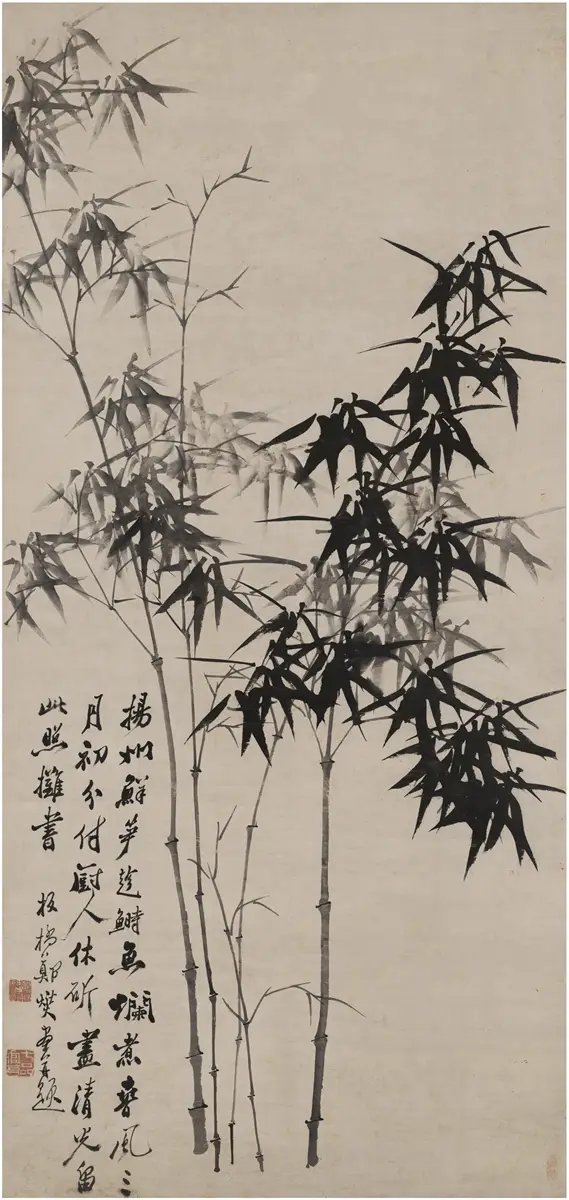 揚州鮮笋趂鰣魚爛煮春風三
月初分付厨人休斫盡清光留
此照攤書 板橋鄭燮畫并題